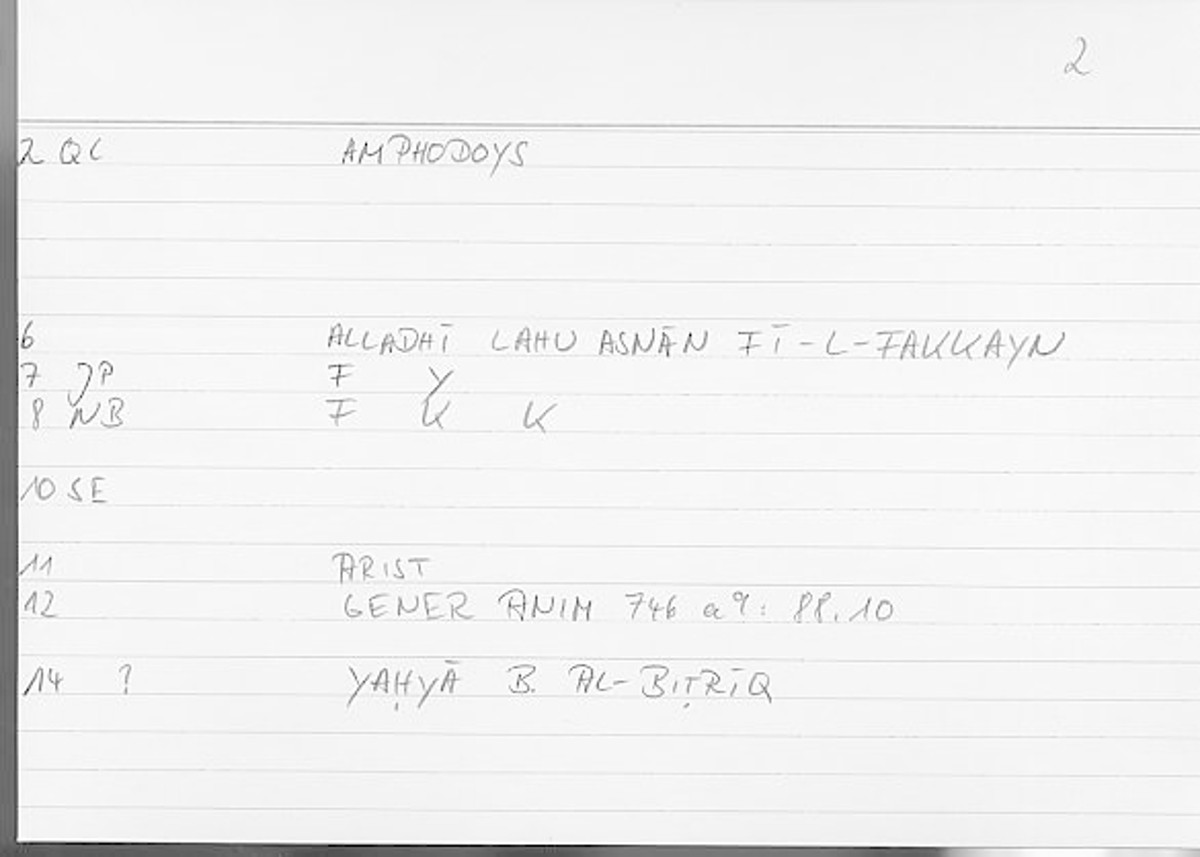 2
2 QC AMPHODOYS
6 ALLADHĪ LAHU ASNĀN FĪ-L-FAKKAYN
7 JP F Y
8 NB F K K
10 SE
11 ARIST
12 GENER ANIM 746 a 9: 88.10
14 ? YAḤYĀ B. AL-BIṬRĪQ